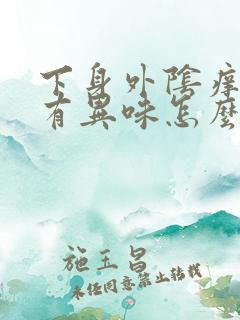 下身外陰痒
有異味怎麽
施玉昌
未经同意禁止转载